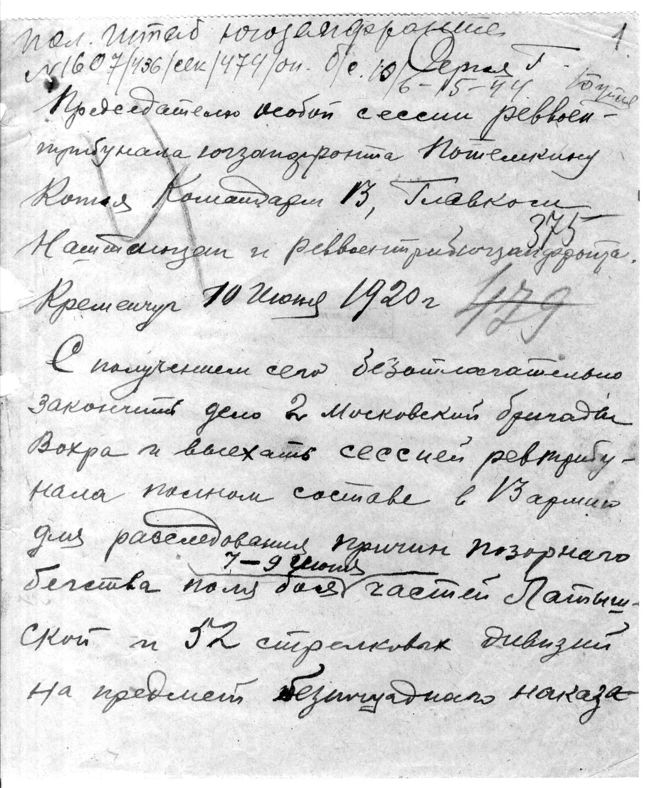 пол. Штаб югозапфронта 1
№1607/436/сек/474/оп. б/с. 10 Сергея Г.
6-15-44
Председателю особой сессии реввоен-
трибунала югзапфронта Потемкину
Копия Командарм 13, Главком
375
Наштаюзап и реввоентриб югзапфронта.
Кременчуг 10 Июня 1920 г 479
С получением сего безотлагательно
закончить дело 2 Московский бригады
Вохра и выехать сессией ревтрибу-
нала полном составе в 13 армию
для расследования причин позорного
7-9 Июня
бегства поля боя частей Латыш-
ской и 52 стрелковых дивизий
на предмет безпощадного наказа-